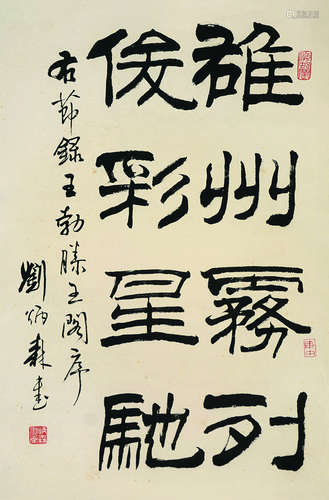 雄州霧列
俊彩星馳
右節錄王勃滕王閣序
劉炳森書